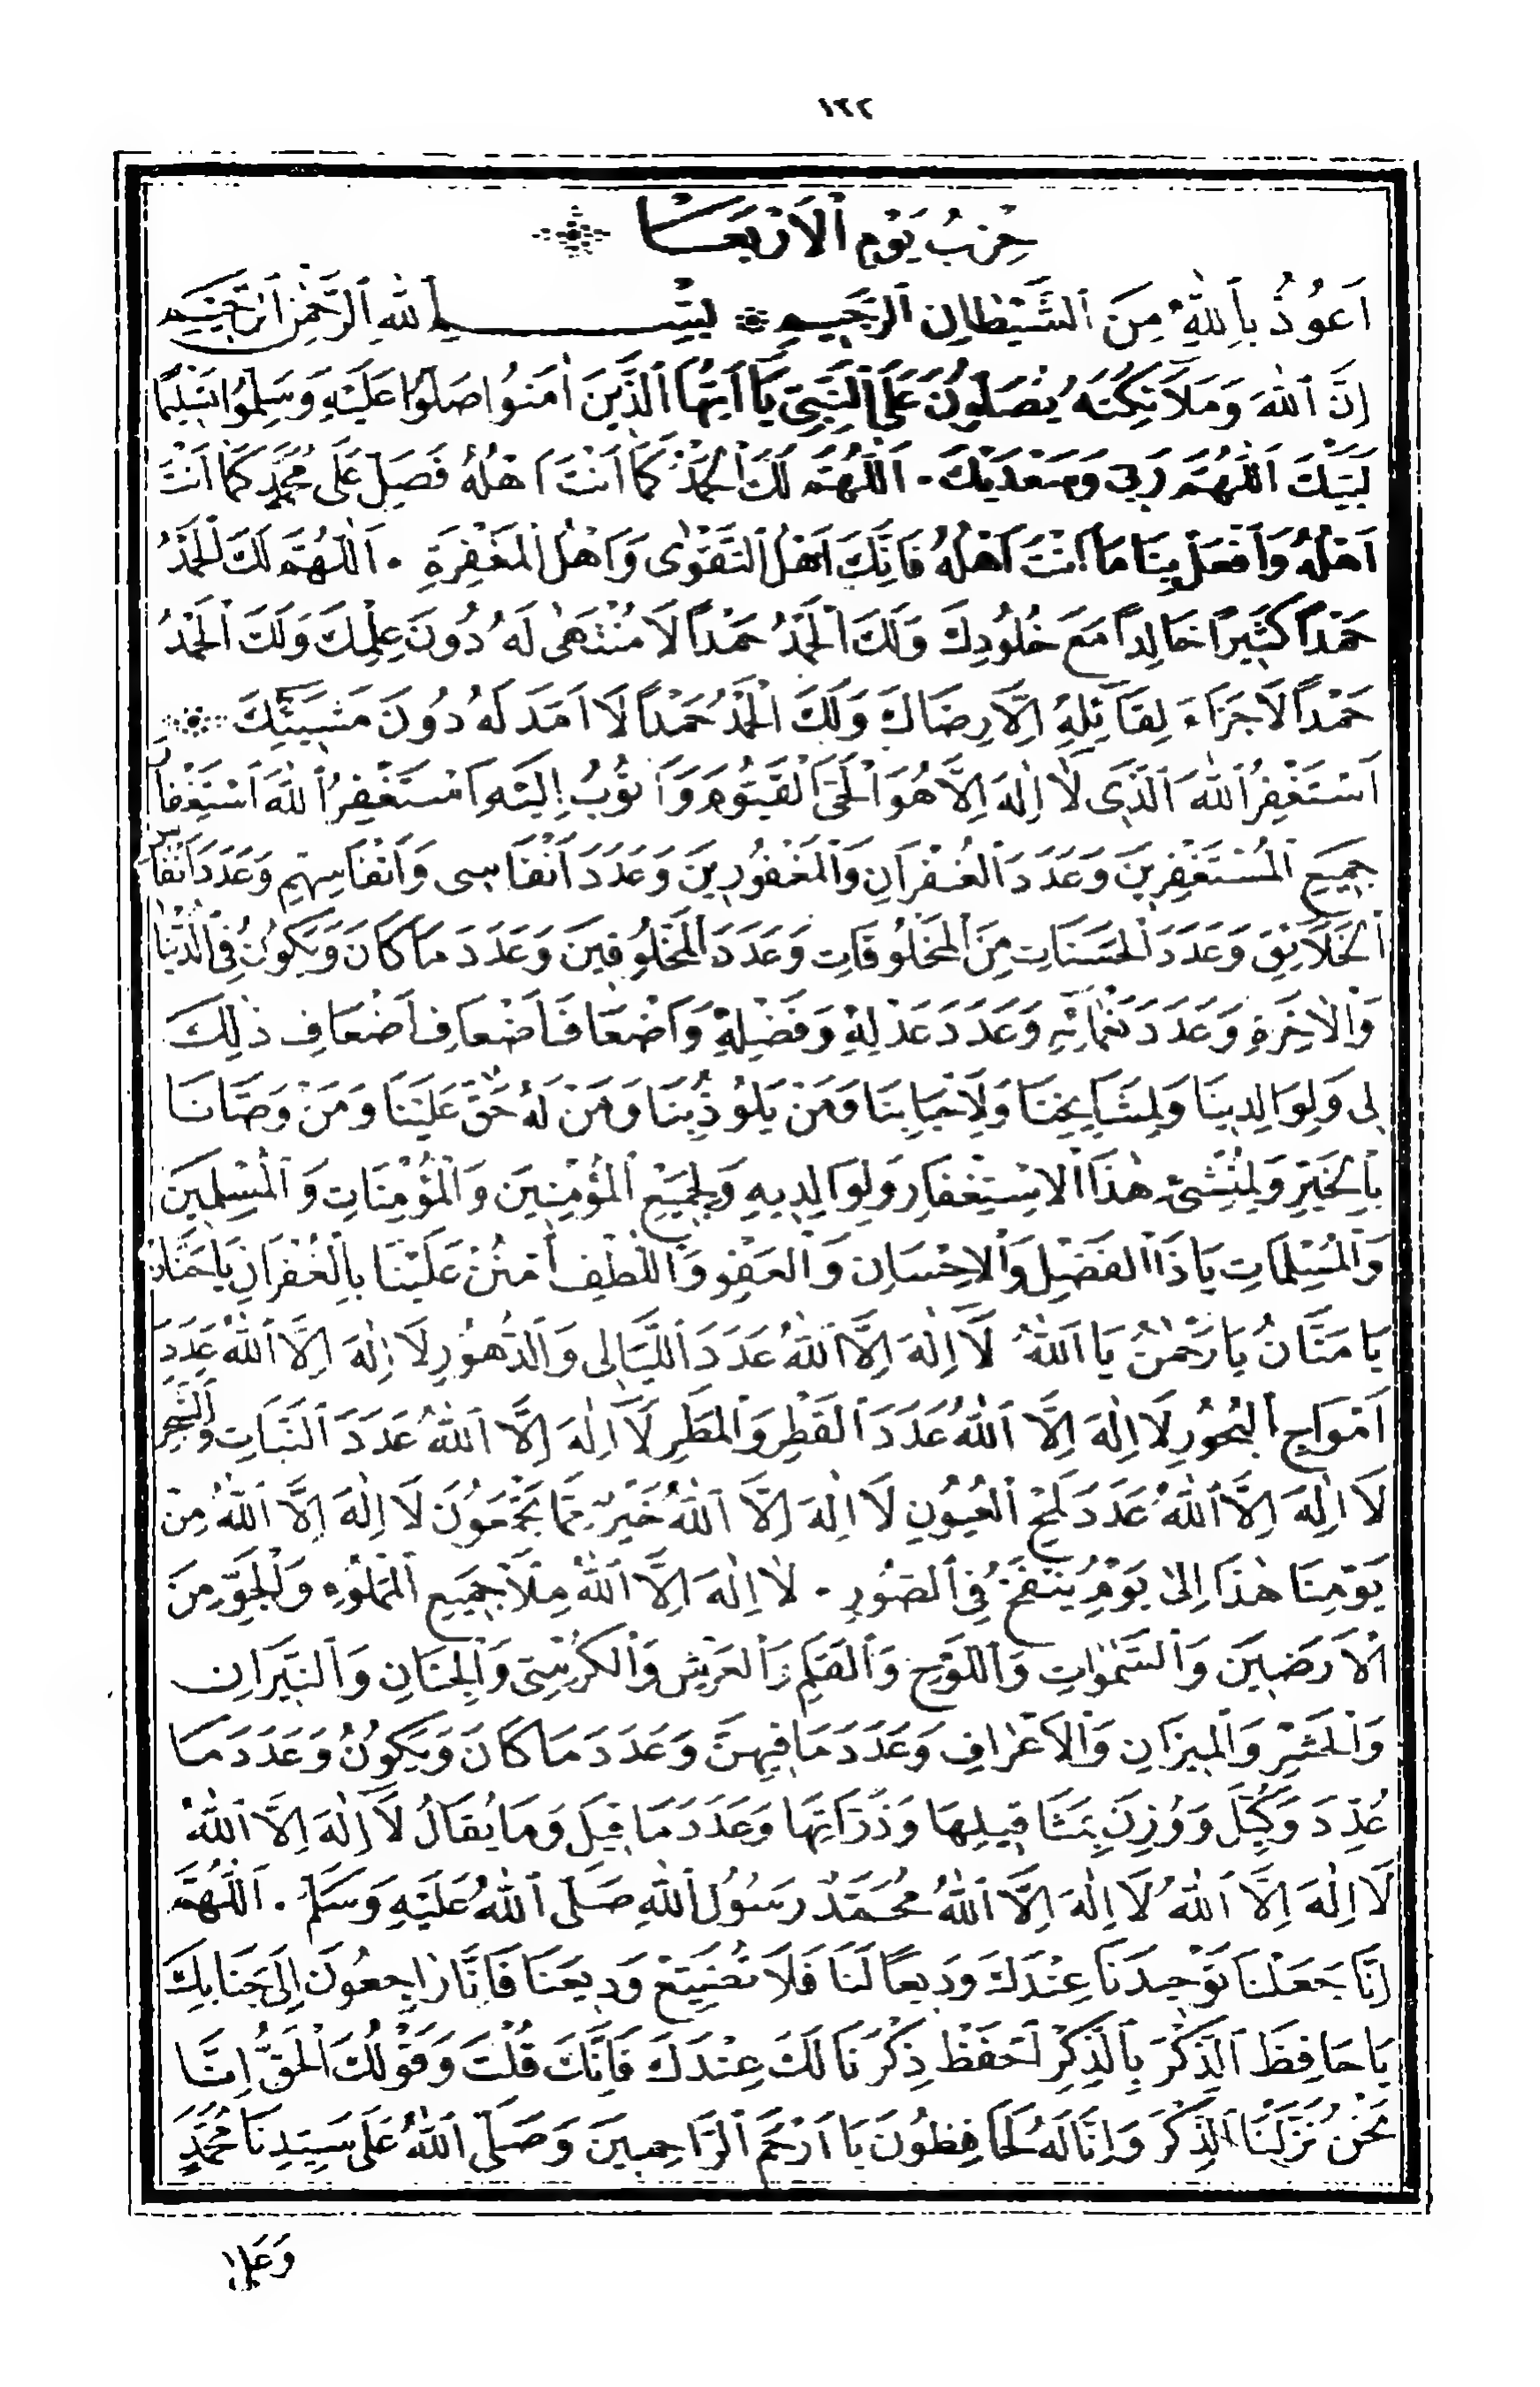 ١٢٢
حِزْبُ يَوْمِ ٱلْاَرْبَعَا
اَعُوذُ بِٱللّٰهِ مِنَ ٱلشَّيْطَانِ ٱلرَّجِيمِ بِسْمِ ٱللّٰهِ ٱلرَّحْمٰنِ ٱلرَّحِيمِ
اِنَّ ٱللّٰهَ وَمَلَآئِكَتَهُ يُصَلُّونَ عَلَى ٱلنَّبِيِّ يَآ اَيُّهَا ٱلَّذِينَ اٰمَنُوا صَلُّوا عَلَيْهِ وَسَلِّمُوا تَسْلِيمًا
لَبَّيْكَ اَللّٰهُمَّ رَبِّى وَسَعْدَيْكَ . اَللّٰهُمَّ لَكَ ٱلْحَمْدُ كَمَآ اَنْتَ اَهْلُهُ فَصَلِّ عَلَى مُحَمَّدٍ كَمَآ اَنْتَ
اَهْلُهُ وَٱفْعَلْ بِنَا مَا اَنْتَ اَهْلُهُ فَاِنَّكَ اَهْلُ ٱلتَّقْوٰى وَاَهْلُ ٱلْمَغْفِرَةِ . اَللّٰهُمَّ لَكَ ٱلْحَمْدُ
حَمْدًا كَثِيرًا خَالِدًا مَعَ خُلُودِكَ وَلَكَ ٱلْحَمْدُ حَمْدًا لَا مُنْتَهٰى لَهُ دُونَ عِلْمِكَ وَلَكَ ٱلْحَمْدُ
حَمْدًا لَا جَزَآءَ لِقَآئِلِهِ اِلَّا رِضَاكَ وَلَكَ ٱلْحَمْدُ حَمْدًا لَا اَمَدَ لَهُ دُونَ مَشِيَّتِكَ
اَسْتَغْفِرُ ٱللّٰهَ ٱلَّذِى لَآ اِلٰهَ اِلَّا هُوَ ٱلْحَيَّ ٱلْقَيُّومَ وَاَتُوبُ اِلَيْهِ اَسْتَغْفِرُ ٱللّٰهَ اَسْتِغْفَارَ
جَمِيعِ ٱلْمُسْتَغْفِرِينَ وَعَدَدَ ٱلْغُفْرَانِ وَٱلْمَغْفُورِينَ وَعَدَدَ اَنْفَاسِى وَاَنْفَاسِهِمِ وَعَدَدَ اَنْفَاسِ
ٱلْخَلَآئِقِ وَعَدَدَ ٱلْحَسَنَاتِ مِنَ ٱلْمَخْلُوقَاتِ وَعَدَدَ ٱلْمَخْلُوقِينَ وَعَدَدَ مَا كَانَ وَيَكُونُ فِى ٱلدُّنْيَا
وَٱلْاٰخِرَةِ وَعَدَدَ نَعْمَآئِهِ وَعَدَدَ عَدْلِهِ وَفَضْلِهِ وَاَضْعَافَ اَضْعَافِ اَضْعَافِ ذٰلِكَ
لِى وَلِوَالِدِينَا وَلِمَشَايِخِنَا وَلِاَحْبَابِنَا وَمَنْ يَلُوذُ بِنَا وَمَنْ لَهُ حَقٌّ عَلَيْنَا وَمَنْ وَصَّانَا
بِٱلْخَيْرِ وَلِمُنْشِئِ هٰذَا ٱلْاِسْتِغْفَارِ وَلِوَالِدِيهِ وَلِجَمِيعِ ٱلْمُؤْمِنِينَ وَٱلْمُؤْمِنَاتِ وَٱلْمُسْلِمِينَ
وَٱلْمُسْلِمَاتِ يَا ذَا ٱلْفَضْلِ وَٱلْاِحْسَانِ وَٱلْعَفْوِ وَٱللُّطْفِ اُمْنُنْ عَلَيْنَا بِٱلْغُفْرَانِ يَا حَنَّانُ
يَا مَنَّانُ يَا رَحْمٰنُ يَا اَللّٰهُ لَآ اِلٰهَ اِلَّا ٱللّٰهُ عَدَدَ ٱللَّيَالِى وَٱلدُّهُورِ لَا اِلٰهَ اِلَّا ٱللّٰهُ عَدَدَ
اَمْوَاجِ ٱلْبُحُورِ لَا اِلٰهَ اِلَّا ٱللّٰهُ عَدَدَ ٱلْقَطْرِ وَٱلْمَطَرِ لَآ اِلٰهَ اِلَّا ٱللّٰهُ عَدَدَ ٱلنَّبَاتِ وَٱلشَّجَرِ
لَا اِلٰهَ اِلَّا ٱللّٰهُ عَدَدَ لَمْحِ ٱلْعُيُونِ لَا اِلٰهَ اِلَّا ٱللّٰهُ خَيْرٌ مِمَّا يَجْمَعُونَ لَا اِلٰهَ اِلَّا ٱللّٰهُ مِنْ
يَوْمِنَا هٰذَا اِلٰى يَوْمِ يُنْفَخُ فِى ٱلصُّورِ . لَا اِلٰهَ اِلَّا ٱللّٰهُ مِلْأَ جَمِيعِ ٱلْمَمْلُوِّ وَٱلْجَوِّ مِنَ
ٱلْاَرَضِينَ وَٱلسَّمٰوَاتِ وَٱللَّوْحِ وَٱلْقَلَمِ وَٱلْعَرْشِ وَٱلْكُرْسِىِّ وَٱلْجِنَانِ وَٱلنِّيرَانِ
وَٱلْحَشْرِ وَٱلْمِيزَانِ وَٱلْاَعْرَافِ وَعَدَدَ مَا فِيهِنَّ وَعَدَدَ مَا كَانَ وَيَكُونُ وَعَدَدَ مَا
عُدِّدَ وَكُيِّلَ وَوُزِنَ بِمَثَاقِيلِهَا وَذَرَّاتِهَا وَعَدَدَ مَا قِيلَ وَمَا يُقَالُ لَآ اِلٰهَ اِلَّا ٱللّٰهُ
لَا اِلٰهَ اِلَّا ٱللّٰهُ لَا اِلٰهَ اِلَّا ٱللّٰهُ مُحَمَّدٌ رَسُولُ ٱللّٰهِ صَلَّى ٱللّٰهُ عَلَيْهِ وَسَلَّمْ . اَللّٰهُمَّ
اِنَّا جَعَلْنَا تَوْحِيدَنَا عِنْدَكَ وَدِيعًا لَنَا فَلَا تُضَيِّعْ وَدِيعَنَا فَاِنَّا رَاجِعُونَ اِلَى جَنَابِكَ
يَا حَافِظَ ٱلذِّكْرِ بِٱلذِّكْرِ احْفَظْ ذِكْرَنَا لَكَ عِنْدَكَ فَاِنَّكَ قُلْتَ وَقَوْلُكَ ٱلْحَقُّ اِنَّا
نَحْنُ نَزَّلْنَا ٱلذِّكْرَ وَاِنَّا لَهُ لَحَافِظُونَ يَا اَرْحَمَ ٱلرَّاحِمِينَ وَصَلَّى ٱللّٰهُ عَلَى سَيِّدِنَا مُحَمَّدٍ
وَعَلٰى